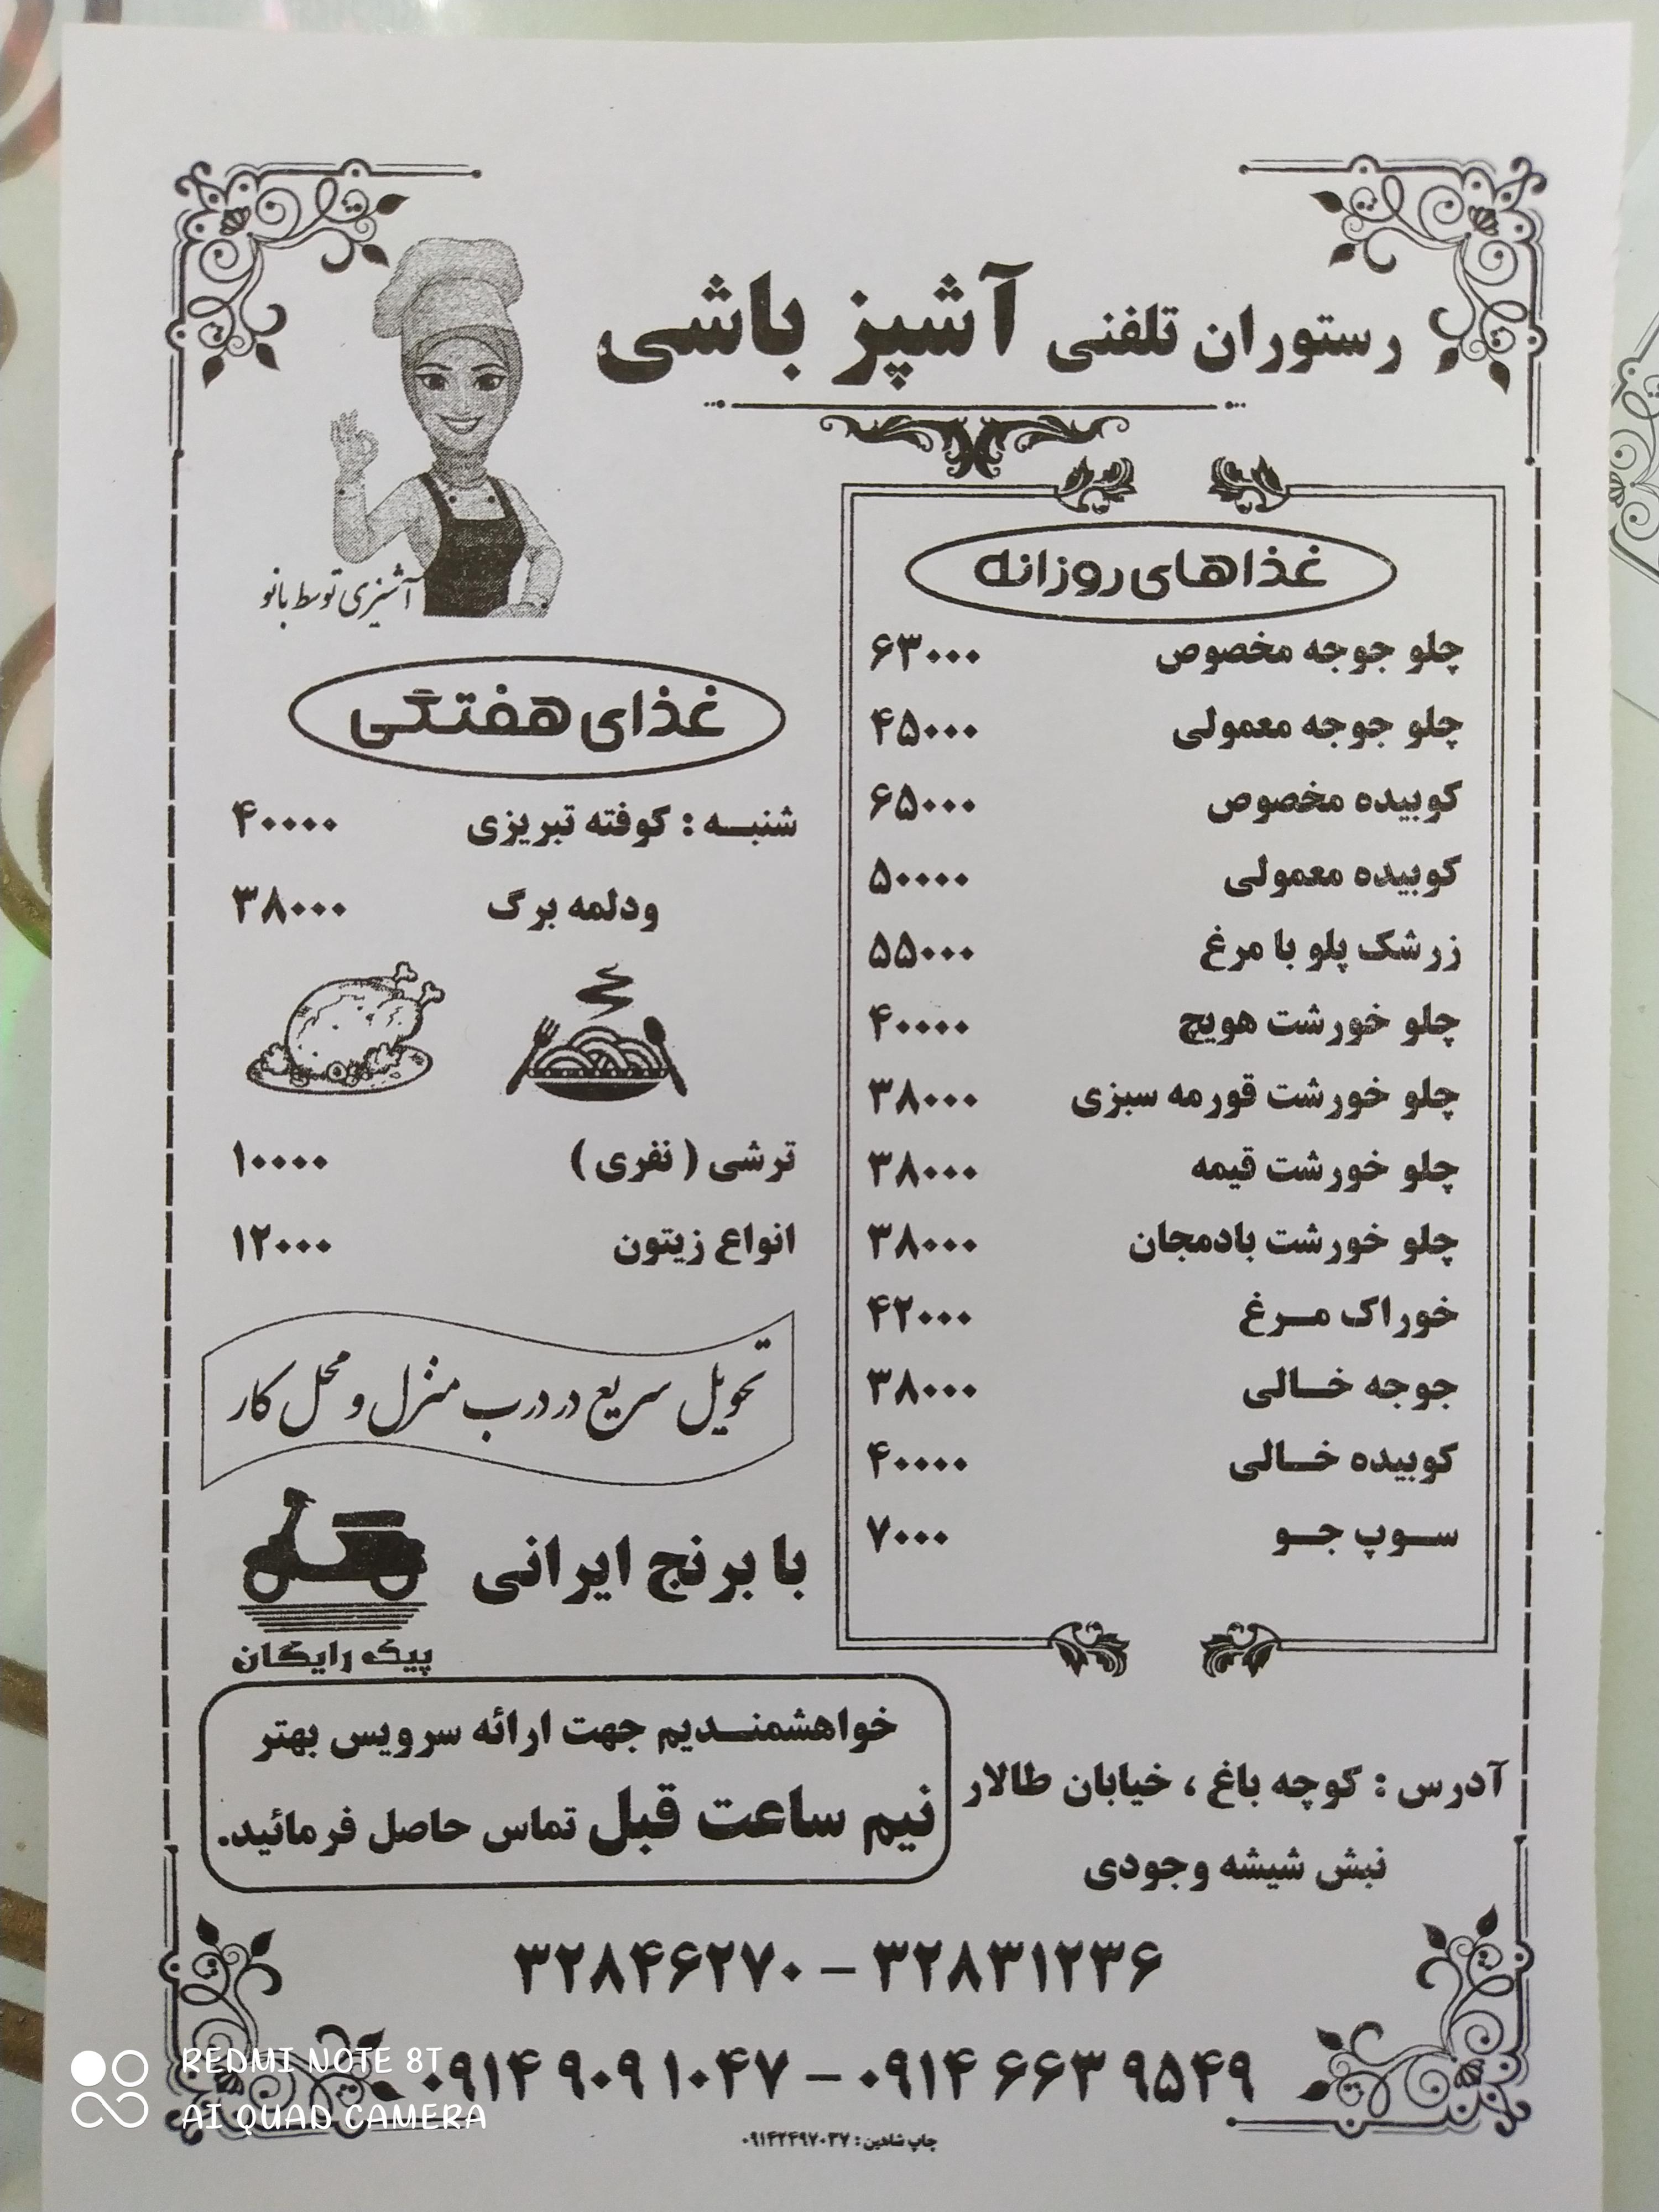 رستوران تلفنی آشپز باشی
آشپزی توسط بانو
غذاهای روزانه
چلو جوجه مخصوص ۶۳۰۰۰
چلو جوجه معمولی ۴۵۰۰۰
کوبیده مخصوص ۶۵۰۰۰
کوبیده معمولی ۵۰۰۰۰
زرشک پلو با مرغ ۵۵۰۰۰
چلو خورشت هویج ۴۰۰۰۰
چلو خورشت قورمه سبزی ۳۸۰۰۰
چلو خورشت قیمه ۳۸۰۰۰
چلو خورشت بادمجان ۳۸۰۰۰
خوراک مرغ ۴۲۰۰۰
جوجه خالی ۳۸۰۰۰
کوبیده خالی ۴۰۰۰۰
سوپ جو ۷۰۰۰
غذای هفتگی
شنبه : کوفته تبریزی ۴۰۰۰۰
ودلمه برگ ۳۸۰۰۰
ترشی ( نفری ) ۱۰۰۰۰
انواع زیتون ۱۲۰۰۰
تحویل سریع در درب منزل و محل کار
با برنج ایرانی
پیک رایگان
آدرس : کوچه باغ ، خیابان طالار
نبش شیشه وجودی
خواهشمندیم جهت ارائه سرویس بهتر
نیم ساعت قبل تماس حاصل فرمائید.
۳۲۸۴۶۲۷۰ – ۳۲۸۳۱۲۳۶
۰۹۱۴ ۹۰۹ ۱۰۴۷ – ۰۹۱۴ ۶۶۳ ۹۵۴۹
چاپ شاهین : ۰۹۱۴۲۴۹۷۰۳۷
REDMI NOTE 8T
AI QUAD CAMERA